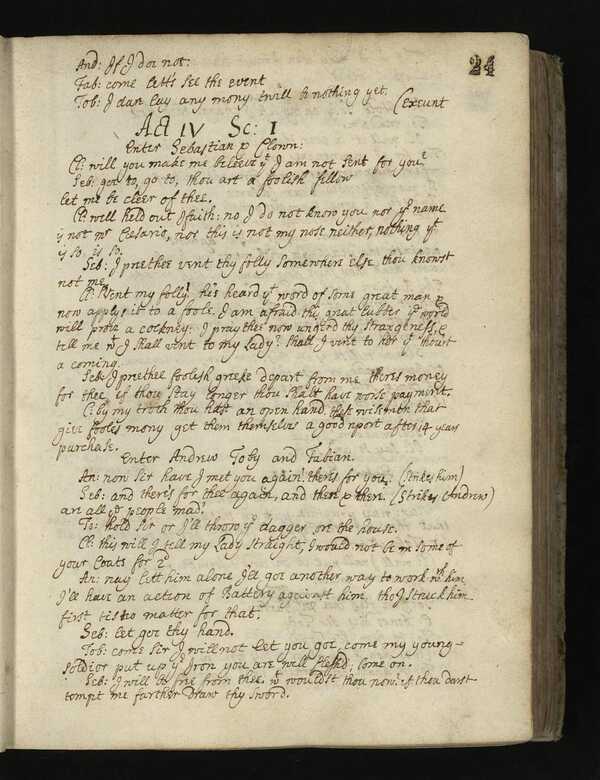 24
And: If I doe not:
Fab: come letts see the event
Tob: I dare lay any mony twill be nothing yet.
(exeunt
Act IV Sc: I
Enter Sebastian & Clown:
Cl: will you make me beleive yt I am not sent for you?
Seb: goe to, go to, thou art a foolish fellow
let me be cleer of thee.
Cl: well held out Ifaith: no I do not know you nor yr name
is not mr Cesario, nor this is not my nose neither, nothing yt
is so is so.
Seb: I preethee vent thy folly somewhere else thou knowst
not me.
Cl: Vent my folly! he's heard yt word of some great man &
now applys it to a foole. I am afraid this great lubber ye world
will prove a cockney: I praythee now ungird thy strangeness, &
tell me wt I shall vent to my Lady? shall I vent to her yt thourt
a coming.
Seb: I preethee foolish greeke depart from me theres money
for thee, if thou stay longer thou shalt have worse payment.
Cl: by my troth thou hast an open hand, these wisemen that
give fooles mony get them themselves a good report after 14 years
purchase.
Enter Andrew Toby and Fabian.
An: now Sir have I met you again? there's for you. (strikes him)
Seb: and there's for thee again, and there & there. (Strikes Andrew)
are all ye people mad?
To: hold Sir or I'll throw yr dagger ore the house.
Cl: this will I tell my Lady straight, I would not be in some of
your Coats for 2d
An: nay lett him alone I'll goe another way to work wth him
I'll have an action of Battery against him, tho I struck him
first tis no matter for that.
Seb: let goe thy hand.
Tob: come Sir I will not let you goe, come my young-
soldier put up yr Iron you are well flesh'd, come on.
Seb: I will be free from thee. wt wouldst thou now? if thou darst
tempt me further draw thy sword.